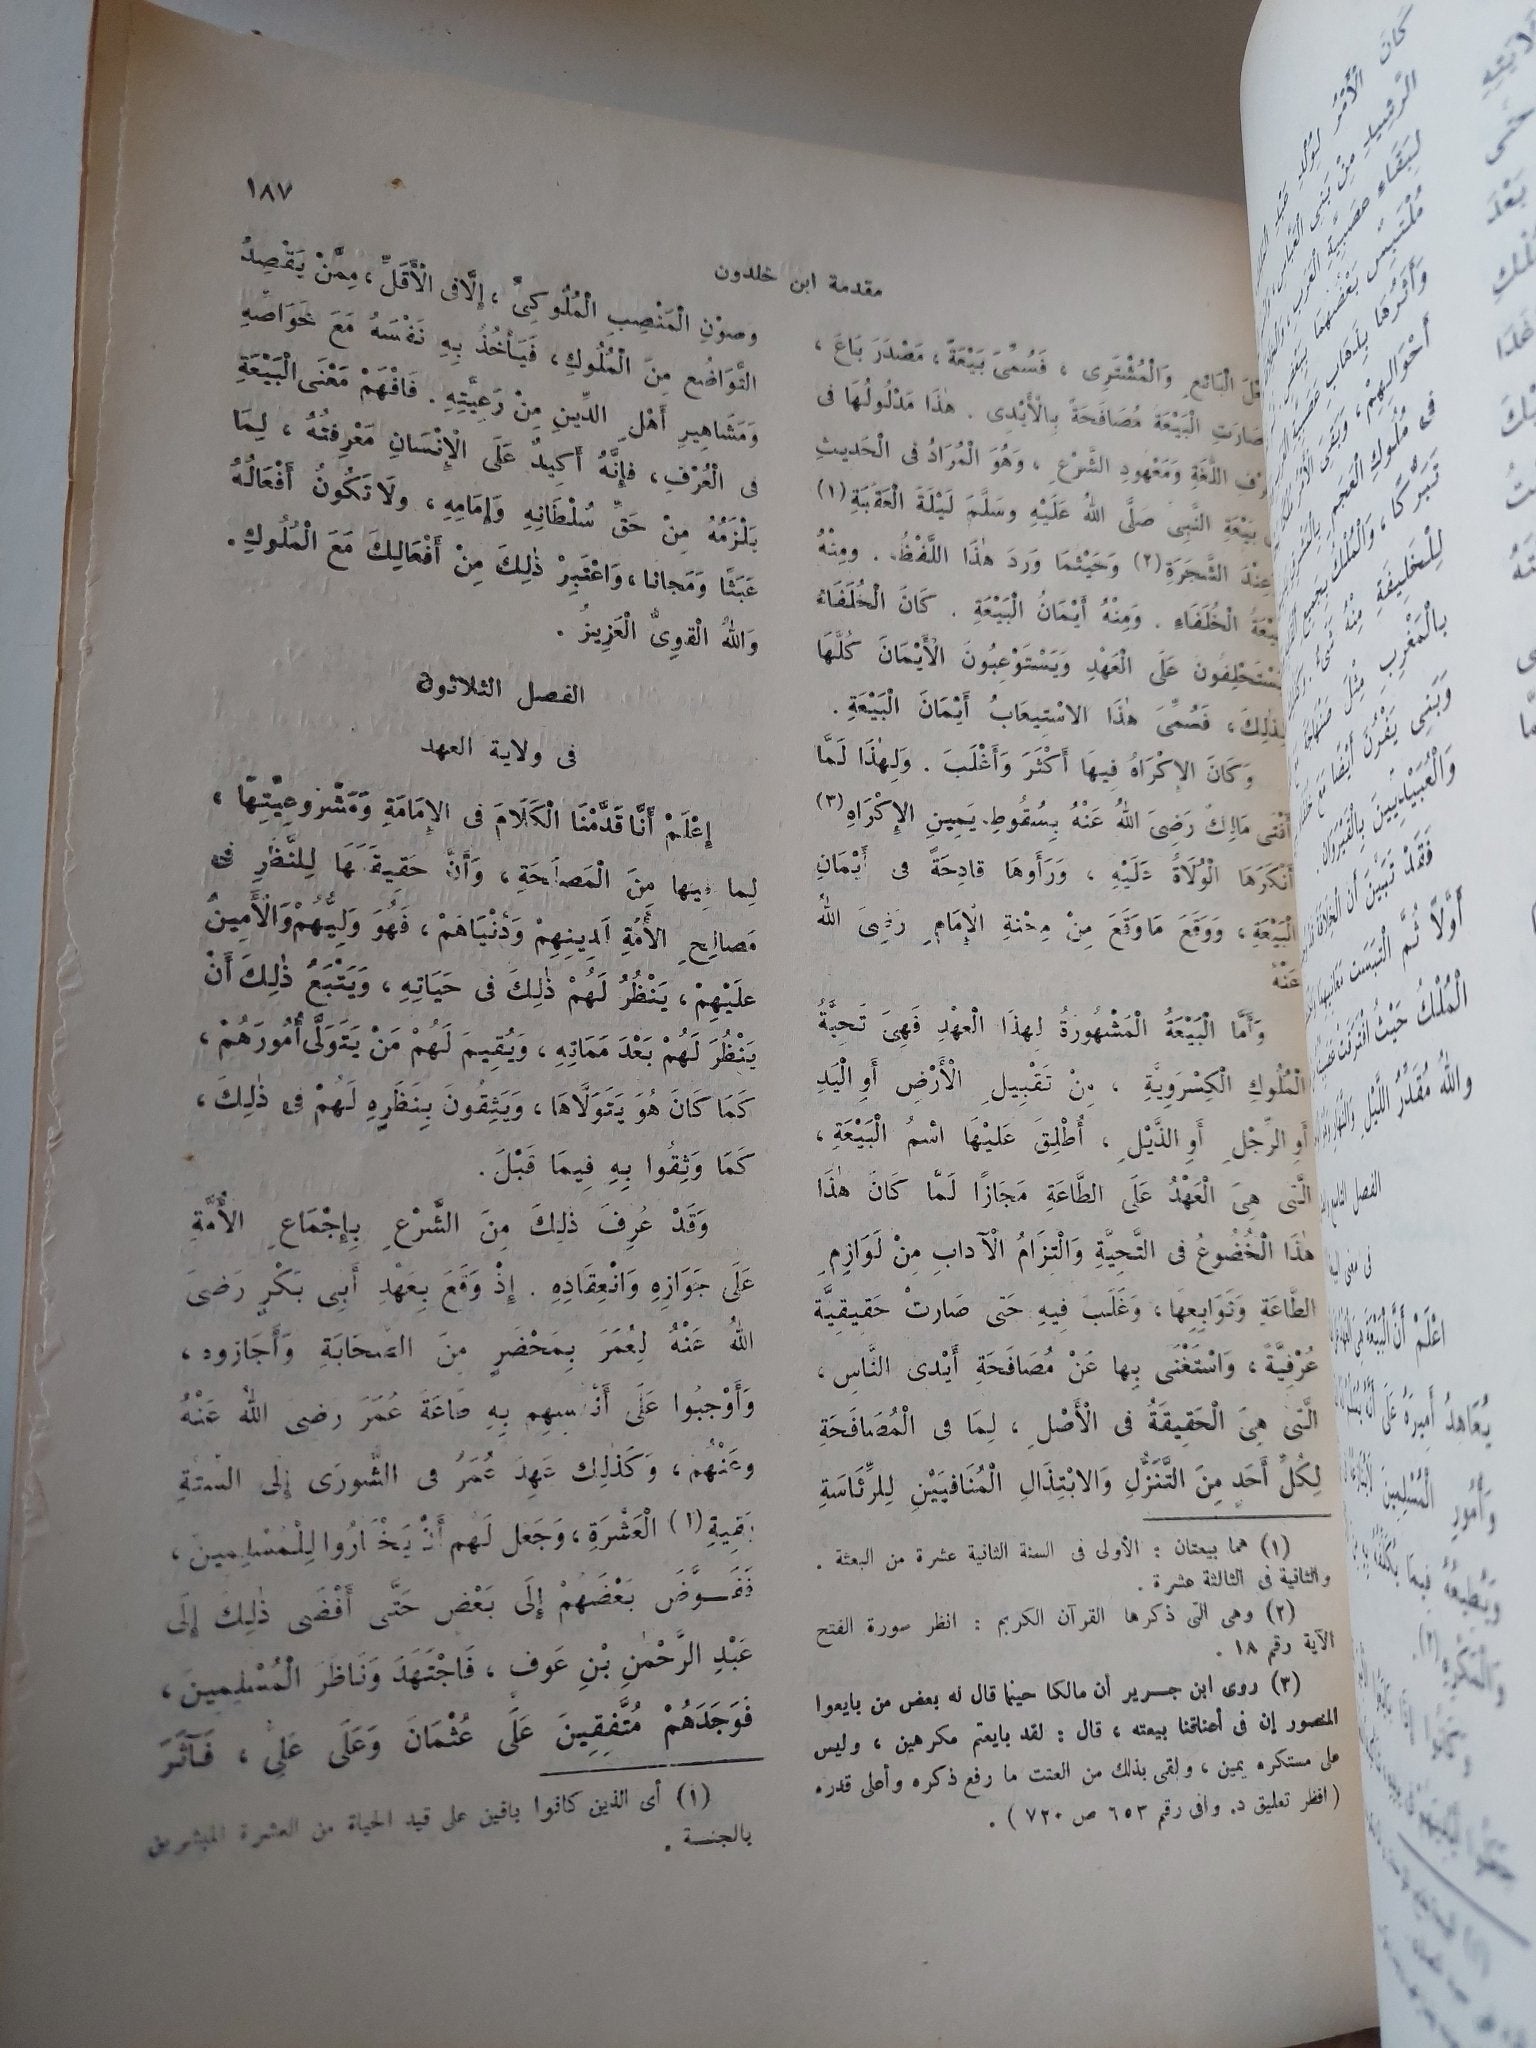 ١٨٧
مقدمة ابن خلدون
الْبَائِعِ وَالْمُشْتَرِى ، فَسُمِّىَ بَيْعَةً ، مَصْدَرَ بَاعَ ،
صَارَتِ الْبَيْعَةُ مُصَافَحَةً بِالْأَيْدِى . هٰذَا مَدْلُولُهَا فى
اللُّغَةِ وَمَعْهُودِ الشَّرْعِ ، وَهُوَ الْمُرَادُ فى الْحَدِيثِ
بَيْعَةِ النَّبِى صَلَّى اللهُ عَلَيْهِ وسَلَّمَ لَيْلَةَ الْعَقَبَةِ (١)
عِنْدَ الشَّجَرَةِ (٢) وَحَيْثُمَا وَرَدَ هٰذَا اللَّفْظُ . ومِنْهُ
بَيْعَةُ الْخُلَفَاءِ . وَمِنْهُ أَيْمَانُ الْبَيْعَةِ . كَانَ الْخُلَفَاءُ
يَسْتَحْلِفُونَ عَلَى الْعَهْدِ وَيَسْتَوْعِبُونَ الْأَيْمَانَ كُلَّهَا
لِذٰلِكَ ، فَسُمِّىَ هٰذَا الاسْتِيعَابُ أَيْمَانَ الْبَيْعَةِ .
وَكَانَ الإِكْرَاهُ فِيهَا أَكْثَرَ وَأَغْلَبَ . وَلِهٰذَا لَمَّا
أَفْتَى مَالِكٌ رَضِىَ اللهُ عَنْهُ بِسُقُوطِ يَمِينِ الإِكْرَاهِ (٣)
أَنْكَرَهَا الْوُلَاةُ عَلَيْهِ ، وَرَأَوهَا قادِحَةً فى أَيْمَانِ
الْبَيْعَةِ ، ووَقَعَ مَا وَقَعَ مِنْ مِحْنةِ الإِمَامِ رَضِىَ اللهُ
عَنْهُ
وَأَمَّا الْبَيْعَةُ الْمَشْهُورَةُ لِهذَا الْعهْدِ فَهِىَ تَحِيَّةُ
الْمُلُوكِ الْكِسْرَوِيَّةِ ، مِنْ تَقْبِيلِ الْأَرْضِ أَوِ الْيَدِ
أَوِ الرِّجْلِ أَوِ الذَّيْلِ ، أُطْلِقَ عَلَيْهَا اسْمُ الْبَيْعَةِ ،
الَّتى هِىَ الْعَهْدُ عَلَى الطَّاعَةِ مَجَازًا لَمَّا كَانَ هٰذَا
هٰذَا الْخُضُوعُ فى التَّحِيَّةِ وَالْتِزَامُ الْآدابِ مِنْ لَوَازِمِ
الطَّاعَةِ وَتَوَابِعِهَا ، وَغَلَبَ فِيهِ حَتى صَارتْ حَقِيقِيَّة
عُرْفِيَّةً ، وَاسْتَغْنَى بِها عَنْ مُصَافَحَةِ أَيْدى النَّاسِ ،
الَّتى هِىَ الْحَقِيقَةُ فى الْأَصْلِ ، لِمَا فى الْمُصَافَحَةِ
لِكُلِّ أَحَدٍ مِنَ التَّنَزُّلِ وَالابْتِذَالِ الْمُنَافيَيْنِ لِلرِّئَاسَةِ
(١) هما بيعتان : الأولى فى السنة الثانية عشرة من البعثة .
والثانية فى الثالثة عشرة .
(٢) وهى التى ذكرها القرآن الكريم : انظر سورة الفتح
الآية رقم ١٨ .
(٣) روى ابن جرير أن مالكا حينما قال له بعض من بايعوا
المنصور إن فى أعناقنا بيعته ، قال : لقد بايعتم مكرهين ، وليس
على مستكره يمين ، ولقى بذلك من العنت ما رفع ذكره وأعلى قدره
(انظر تعليق د. وافى رقم ٦٥٣ ص ٧٣٠) .
وصوْنِ الْمَنْصِبِ الْمُلُوكِىِّ ، إِلَّا فى الْأَقَلِّ ، مِمَّنْ يَقْصِدُ
التَّوَاضُعَ مِنَ الْمُلُوكِ ، فَيَأْخُذُ بِهِ نَفْسَهُ مَعَ خَوَاصِّهِ
وَمَشَاهِيرِ أَهْلِ الدِّينِ مِنْ رَعِيَّتِهِ . فَافْهَمْ مَعْنَى الْبَيْعَةِ
فى الْعُرْفِ ، فَإِنَّهُ أَكِيدٌ عَلَى الْإِنْسَانِ مَعْرِفَتُهُ ، لِمَا
يَلْزَمُهُ مِنْ حَقِّ سُلْطَانِهِ وَإِمَامِهِ ، ولَا تَكُونُ أَفْعَالُهُ
عَبَثًا وَمَجانا ، وَاعْتَبِرْ ذٰلِكَ مِنْ أَفْعَالِكَ مَعَ الْمُلُوكِ .
وَاللهُ الْقوِىُّ الْعَزِيزُ .
الفصل الثلاثون
فى ولاية العهد
إِعْلَمْ أَنَّا قَدَّمْنَا الْكَلَامَ فى الإِمَامَةِ وَمَشْروعِيَّتِهَا ،
لِما فِيها مِنَ الْمَصلَحَةِ ، وَأَنَّ حَقِيقَتَهَا لِلنَّظَرِ فى
مَصالِحِ الأُمَّةِ لِدِينِهِمْ وَدُنْيَاهُمْ ، فَهُوَ وَلِيُّهُمْ وَالْأَمِينُ
علَيْهِمْ ، يَنْظُرُ لَهُمْ ذٰلِكَ فى حَيَاتِهِ ، وَيَتْبَعُ ذٰلِكَ أَنْ
يَنْظُرَ لَهُمْ بَعْدَ مَمَاتِهِ ، وَيُقِيمَ لَهُمْ مَنْ يَتَوَلَّى أُمُورَهُمْ ،
كَمَا كَانَ هُوَ يَتَوَلَّاهَا ، وَيَثِقُونَ بِنَظَرِهِ لَهُمْ فى ذٰلِكَ ،
كَمَا وَثِقُوا بِهِ فِيمَا قَبْلَ .
وَقَدْ عُرِفَ ذٰلِكَ مِنَ الشَّرْعِ بِإِجْمَاعِ الأُمَّةِ
عَلَى جَوَازِهِ وَانْعِقَادِهِ . إِذْ وَقَعَ بِعَهْدِ أَبِى بَكْرٍ رَضىَ
اللهُ عَنْهُ لِعُمَرَ بِمَحْضَرٍ مِنَ الصَّحَابَةِ وَأَجَازوه ،
وَأَوْجَبُوا عَلَى أَنْفُسِهِم بِهِ طَاعَةَ عُمَرَ رضى اللهُ عَنْهُ
وعَنْهُم ، وَكَذٰلِكَ عَهِدَ عُمَرُ فى الشُّورَى إِلى السِّتةِ
بَقِيةِ (١) الْعَشْرَةِ ، وَجَعَل لَهُم أَنْ يَخْتَارُوا لِلْمُسْلِمِينَ ،
فَفَوَّضَ بَعْضُهُمْ إِلَى بَعْضٍ حَتَّى أَفْضَى ذٰلِكَ إِلَى
عَبْدِ الرَّحْمٰنِ بْنِ عَوف ، فَاجْتَهَدَ وَنَاظَرَ الْمُسْلِمِينَ ،
فَوَجَدَهُمْ مُتَّفِقِينَ عَلَى عُثْمَانَ وَعَلَى عَلِىٍّ ، فَآثَرَ
(١) أى الذين كانوا باقين على قيد الحياة من العشرة المبشرين
بالجنة .
كَانَ الْأَمْرُ لِوُلْدِ عَبْدِ
الرَّشِيدِ مِنْ بَنِى الْعَبَّاسِ
لِبَقَاءِ عَصَبِيَّةِ الْعَرَبِ
مُلْتَبِسٌ بَعْضُهُمَا بِبَعْضٍ
وَأَثَرُهَا بِذَهَابِ عَصَبِيَّةِ الْعَرَبِ
أَحْوَالِهِمْ ، وَبَقِىَ الْأَمْرُ
فى مُلُوكِ الْعَجَمِ بِالْمَشْرِقِ
تَبَرُّكًا ، وَالْمُلْكُ بِجَمِيعِ
لِلْخَلِيفَةِ مِنْهُ شَىْءٌ .
بِالْمَغْرِبِ مِثْلَ صنْهَاجَةَ
وَبَنِى يَفْرُنَ أَيْضًا مَعَ
وَالْعُبَيْدِيِّينَ بِالْقَيْرَوَانِ .
فَقَدْ تَبَيَّنَ أَن الْخِلَافَةَ
أَوَّلاً ثُمَّ الْتَبَسَت مَعَانِيهَا
الْمُلْكُ حَيْثُ افْتَرَقَتْ
واللهُ مُقَدِّرُ اللَّيْلِ وَالنَّهَارِ
الفصل التاسع
فى معنى
اعْلَمْ أَنَّ الْبَيْعَةَ هِىَ
يُعَاهِدُ أَمِيرَهُ عَلَى أَنَّهُ
وَأُمُورِ الْمُسْلِمِينَ
وَيُطِيعُهُ فِيمَا يُكَلِّفُهُ
وَالْمَكْرَهِ (٢).